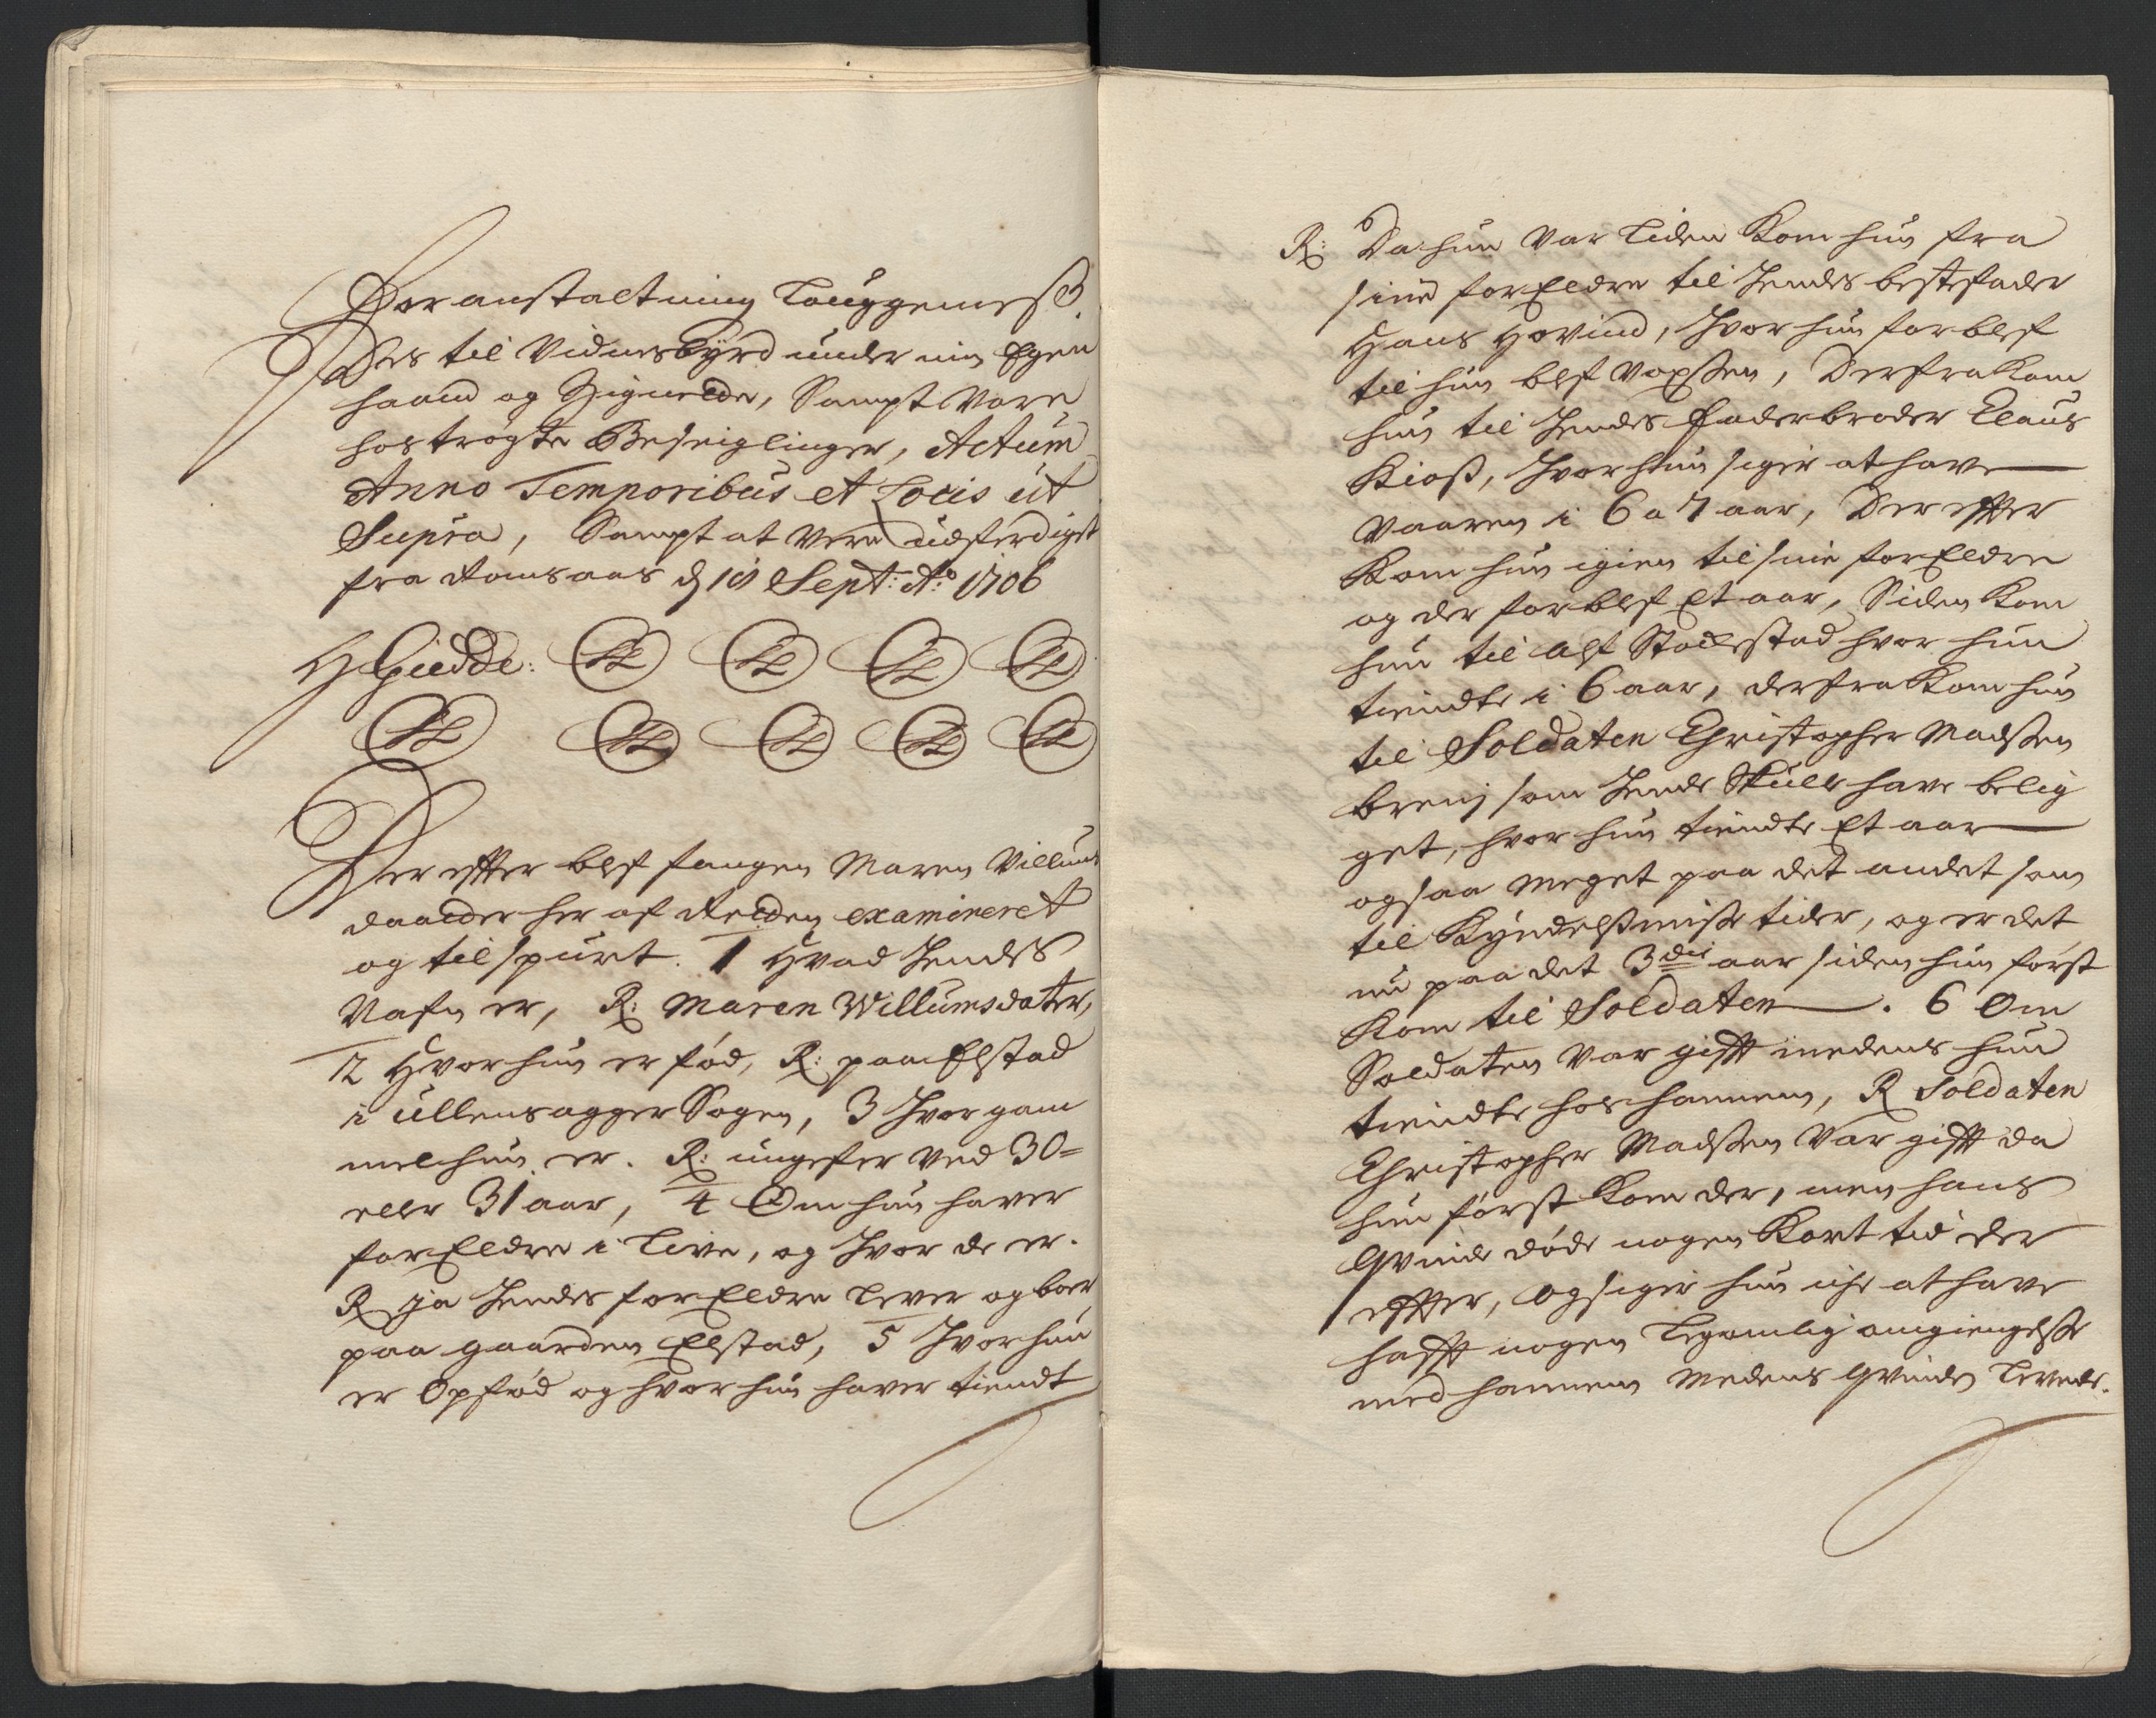 For anstaltning Louggemeß.
Des til Vidnesbyrd under min Egen
haand og Signete, Sampt Vore
hostrøgte Beseiglinger, Actum
Anno Temporibus et Locis ut
Supra, Sampt at Være udferdiget
fra Ramsaas d 18 Sept: Ao: 1706
HGiedde: LS LS LS LS
LS LS LS LS LS
Der effter blef fangen Maren Villums
daatter her af Retten examineret
og tilspurt. 1 Hvad Hendes
Nafn er, R: Maren Willumsdater,
2 Hvor hun er fød, R: paa Elstad
i Ullensagger Sogen, 3 Hvor gam
mel hun er. R: ungefer Ved 30=
eller 31 aar, 4 Om hun haver
forEldre i Live, og Hvor de er.
R ja Hendes forEldre Lever og boer
paa gaarden Elstad, 5 Hvor hun
er Opfød og hvor hun haver tiendt
R: Da hun Var Liden Kom hun fra
sine forEldre til Hendes bestefader
Hans Hovind, Hvor hun forblef
til hun blef Voxsen, Derfra Kom
hun til Hendes Faderbroder Claus
Kioß, Hvor hun siger at have
Vaaren i 6 a 7 aar, Der effter
Kom hun igien til sine forEldre
og der forblef Et aar, Siden Kom
hun til Alf Stochstad hvor hun
tiendte i 6 aar, derfra Kom hun
til Soldaten Christopher Madsen
brenj som Hende Skulle have belig
get, hvor hun tiendte Et aar
ogsaa meget paa det andet som
til Kyndelsmisse tider, og er det
nu paa det 3die aar siden hun først
Kom til Soldaten. 6 Om
Soldaten Var gifft medens hun
tiendte hos hannem, R Soldaten
Christopher Madsen Var gifft da
hun først Kom der, men hans
Qvinde døde nogen Kort tid der
effter, og siger hun iche at have
hafft nogen Legemlig omgiengelse
med hannem medens Qvinden Levede.